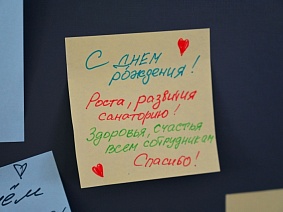 С ДНЕМ
рождения!
Роста, развития
санаторию!
Здоровья, счастья
всем сотрудникам
Спасибо!
ём